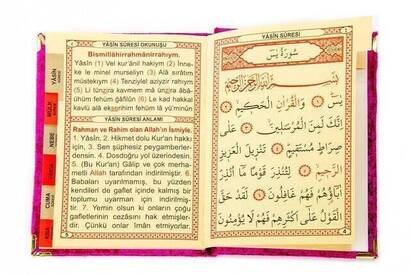 YÂSÎN SÛRESİ OKUNUŞU
Bismillâhirrahmânirrahıym.
Yâsîn (1) Vel kur'ânil hakiym (2) İnne-
ke le minel murseliyn (3) Alâ sırâtım
müstekıym (4) Tenziylel aziyzir rahıym
(5) Li tünzira kavmem mâ ünzira âbâ-
ühüm fehüm ğâfilûn (6) Le kad hakkal
kavlü alâ ekserihim fehüm lâ yü'minûn
YÂSÎN SÛRESİ ANLAMI
Rahman ve Rahim olan Allah'ın İsmiyle.
1. Yâsîn, 2. Hikmet dolu Kur'an hakkı
için, 3. Sen şüphesiz peygamberler-
densin. 4. Dosdoğru yol üzerindesin.
5. (Bu Kur'an) Gâlip ve çok merha-
metli Allah tarafından indirilmiştir. 6.
Babaları uyarılmamış, bu yüzden
kendileri de gaflet içinde kalmış bir
toplumu uyarman için indirilmiş-
tir. 7. Yemin olsun ki onların çoğu
gafletlerinin cezasını hak etmişler-
dir. Çünkü onlar îman etmiyorlar.
5
YÂSİN
SÛRESİ
MÜLK
NEBE
CUMA
YÂSÎN SÛRESİ
سُورَةُ يٰسٓ
بِسْمِ اللّٰهِ الرَّحْمٰنِ الرَّحِيمِ
يٰسٓ ﴿١﴾ وَالْقُرْاٰنِ الْحَكِيمِ ﴿٢﴾
اِنَّكَ لَمِنَ الْمُرْسَلِينَ ﴿٣﴾ عَلٰى
صِرَاطٍ مُسْتَقِيمٍ ﴿٤﴾ تَنْزِيلَ الْعَزِيزِ
الرَّحِيمِ ﴿٥﴾ لِتُنْذِرَ قَوْمًا مَٓا اُنْذِرَ
اٰبَٓاؤُهُمْ فَهُمْ غَافِلُونَ ﴿٦﴾ لَقَدْ حَقَّ
الْقَوْلُ عَلٰٓى اَكْثَرِهِمْ فَهُمْ لَا يُؤْمِنُونَ
4